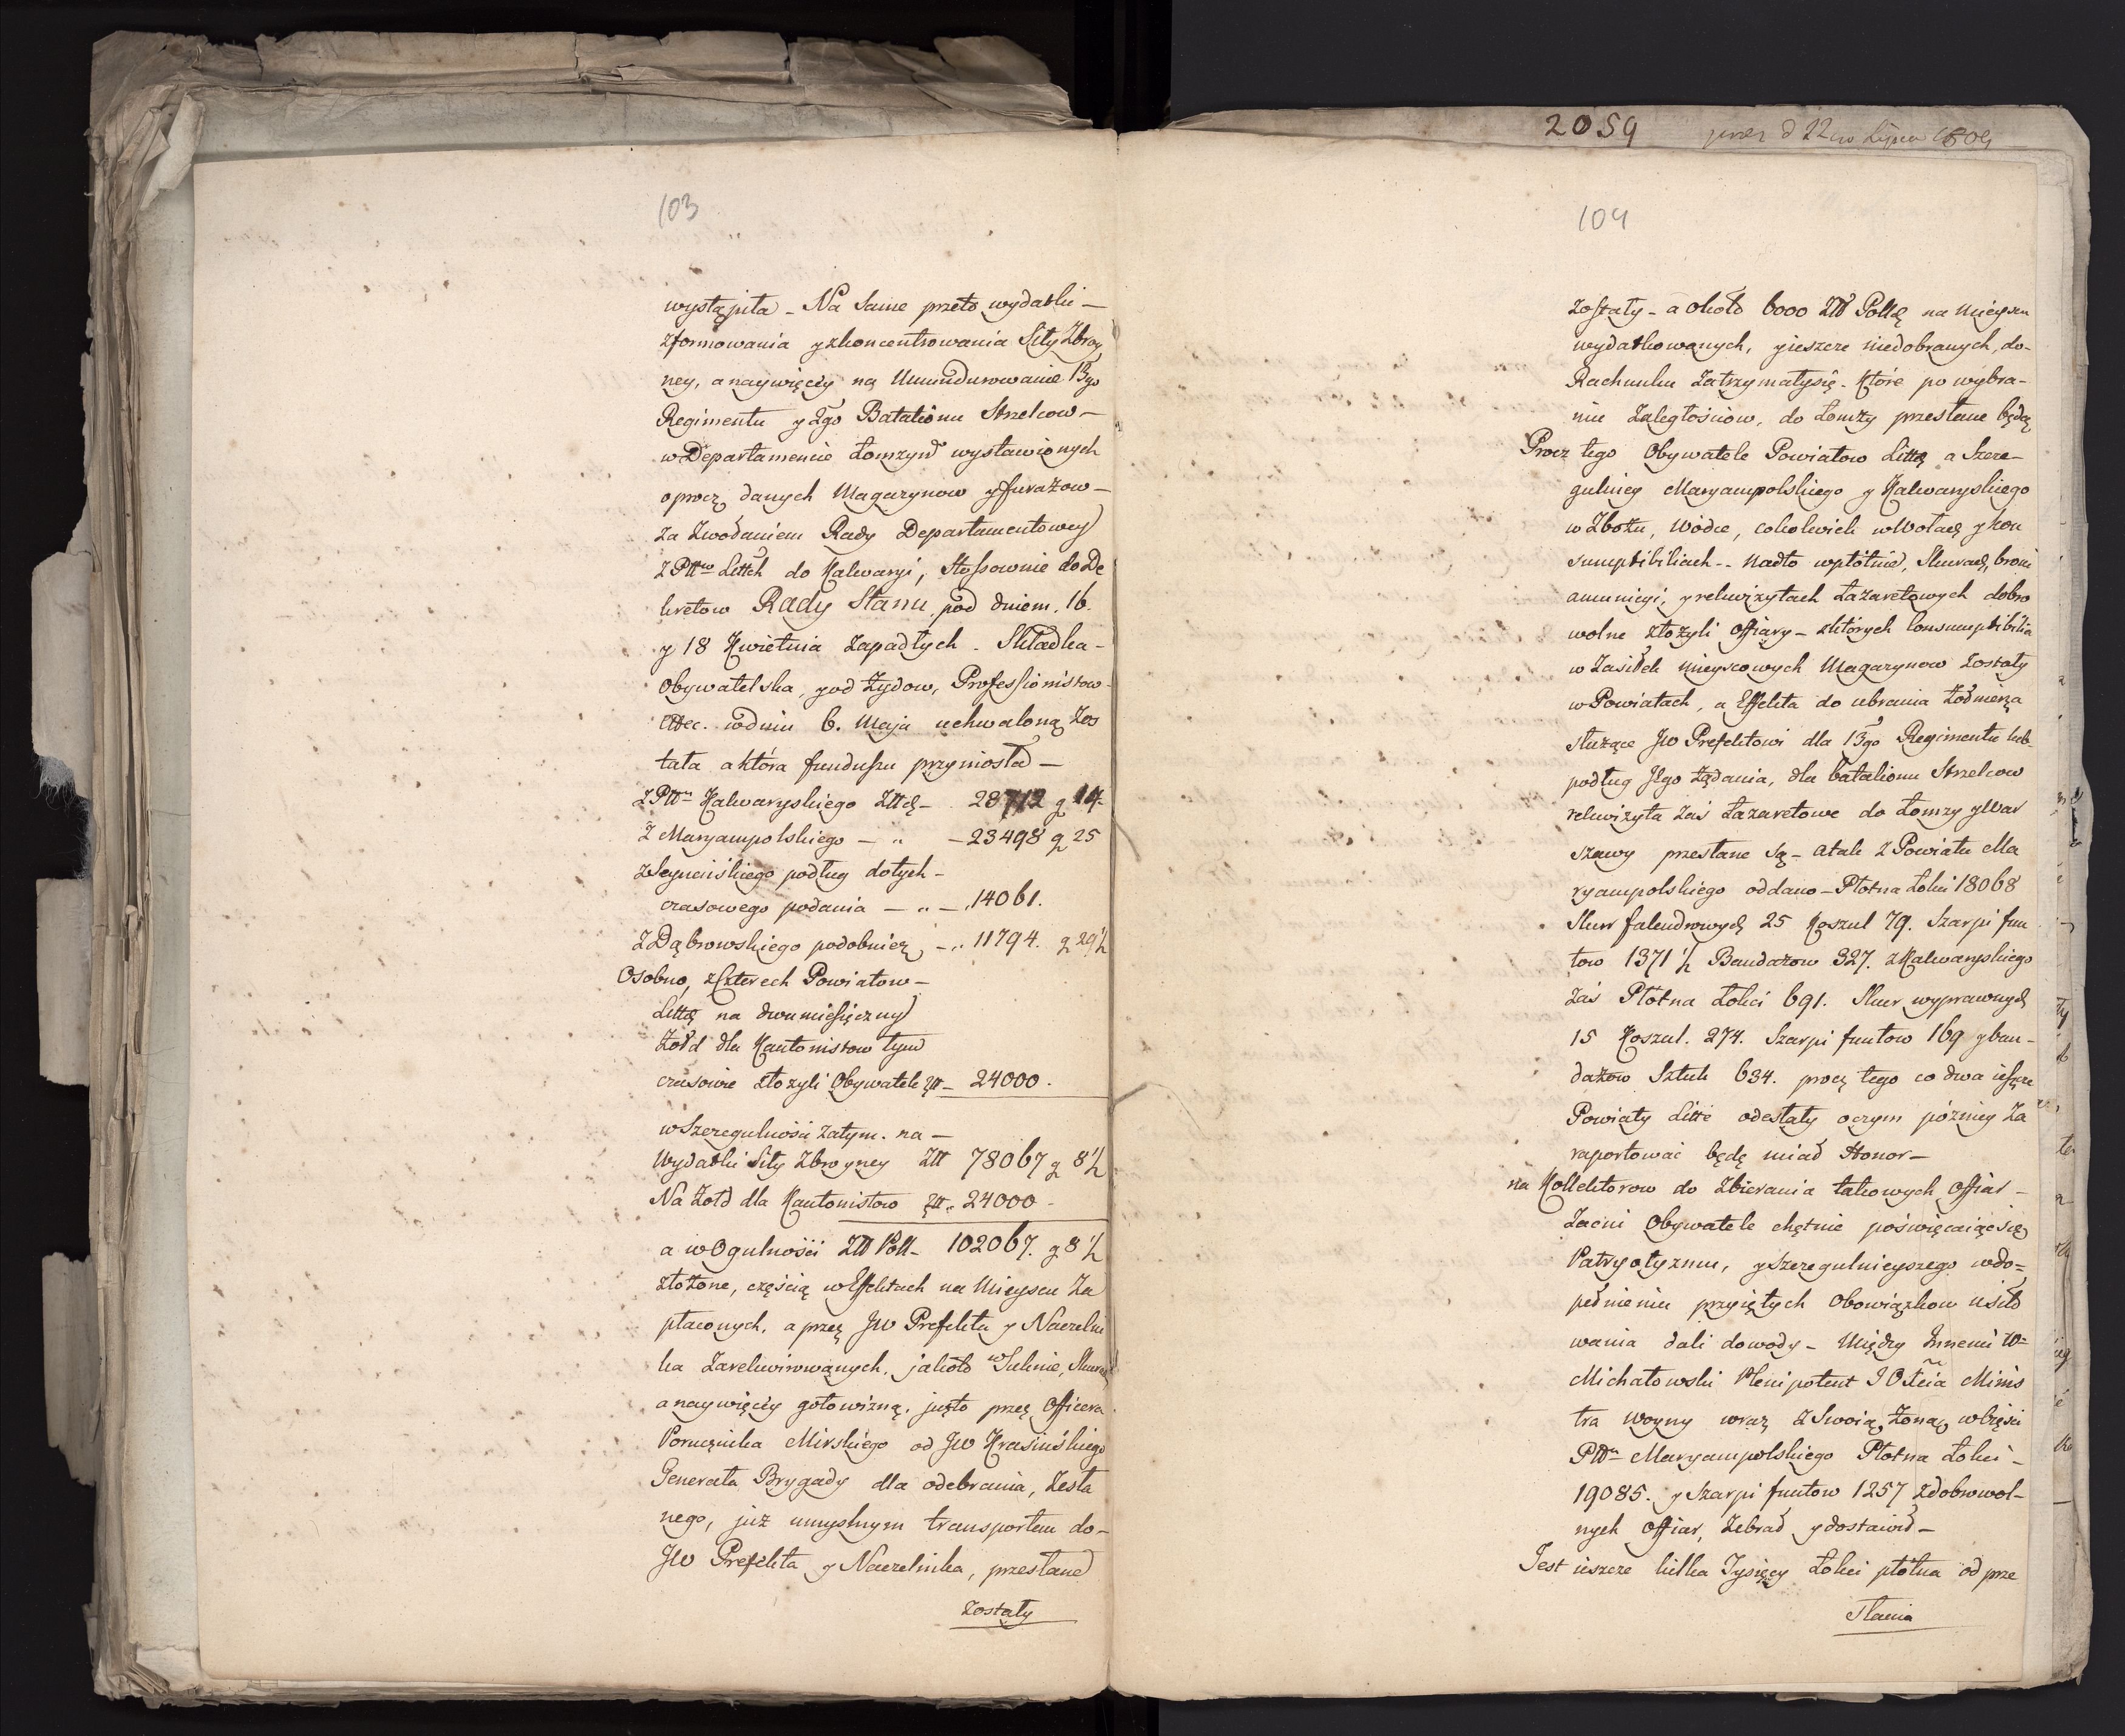 103
wystąpiła - Na same przeto wydatki -
zformowania y zkoncentrowania Siły Zbroy
ney, a naywięcéy na Umundurowanie 13go
Regimentu y 2go Batalionu Strzelcow -
w Departamencie Łomzyń wystawionych
oprocz danych Magazynow y furażow -
za Zwołaniem Rady Departamentowey
z Pttw Littch do Kalwaryi, Stossownie do De
kretow Rady Stanu pod dniem. 16.
y 18 Kwietnia zapadłych - Składka -
Obywatelska, y od Żydow, Professionistow -
ettc. w dniu 6. Maja uchwaloną zos
tała a która funduszu przyniosła -
z Pttu Kalwaryskiego Zttch - 28712 g 14.
z Maryampolskiego - " - 23498 g 25
z Seynenskiego podług dotych -
czasowego podania - " - 14061.
z Dąbrowskiego podobnież - " 11794. g 29 ½
Osobno, z Czterech Powiatow -
Littch na dwumiesięczny
Żołd dla Kantonistow tym
czasowie złożyli Obywatele Ztt - 24000.
w Szeregulności zatym. na -
Wydatki Siły Zbroyney Ztt 78067 g 8 ½
Na Żołd dla Kantonistow Ztt " 24000 -
a w Ogulności Ztt Poll - 102067. g 8 ½
złożone, częścią w Effektach na Mieyscu Za
płaconych, a przez JW Prefekta y Naczelni
ka Zarekwirowanych, jakoto w Suknie, Skurach
a naywięcéy gotowizną, jużto przez Officera
Porucznika Mirskiego od JW Krasińskiego
Generała Brygady dla odebrania, Zesła
nego, już umyslnym transportem do -
JW Prefekta y Naczelnika, przesłane
zostały
2059 prez d 22go Lipca 1809
104
zostały - a około 6000 Ztt Pollch na Mieyscu
wydatkowanych, y ieszcze niedobranych, do -
Rachunku Zatrzymałysię - Które po wybra -
niu Zaległościow, do Łomży przesłane będą
Procz tego Obywatele Powiatow Littch a Szere -
gulniey Maryampolskiego y Kalwaryskiego
w Zbożu, Wódce, cokolwiek w Wołach y kon
sumptibiliach - - nadto w płótnie, Skurach, broni
amunicyi, y rekwizytach Łazaretowych dobro
wolne złożyli offiary - z których Consumptibilia
w Zasiłek mieyscowych Magazynow zostały
w Powiatach, a Effekta do ubrania Żołnierza
służące JW Prefektowi dla 13go Regimentu lub -
podług Jego Żądania, dla batalionu Strzelcow
rekwizyta zaś Łazaretowe do Łomzy y War
szawy przesłane są - a tak z Powiatu Ma
ryampolskiego oddano - Płotna Łokci 18068
Skur falendrowych 25 Koszul 79. Szarpi fun
tow 1371 ½ Bandażow 327. z Kalwaryskiego
zaś Płótna Łokci 691. Skur wyprawnych
15 Koszul. 274. Szarpi funtow 169 y ban -
dażow Sztuk 634. procz tego co dwa ieszcze
Powiaty Litte odesłały o czym pózniey Za
raportować będę miał Honor -
na Kollektorow do Zbierania takowych offiar -
Zacni Obywatele chętnie poświęcaiąc się
Patryotyzmu, y Szeregulnieyszego w do =
pełnieniu przyiętych Obowiązkow usiło
wania dali dowody - Między Innemi W =
Michałowski Plenipotent JOXcia Minis
tra Woyny wraz z Swoią Żoną, w Części
Pttu Maryampolskiego Płotna Łokci -
19085. y Szarpi funtow 1257 z dobrowol -
nych offiar, zebrał y dostawił -
Jest ieszcze kilka Tysięcy Łokci płótna od prze
słania